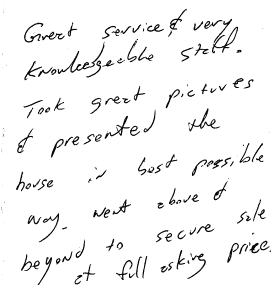 Great service & very
knowledgeable staff.
Took great pictures
& presented the
house in best possible
way. Went above &
beyond to secure sale
at full asking price.